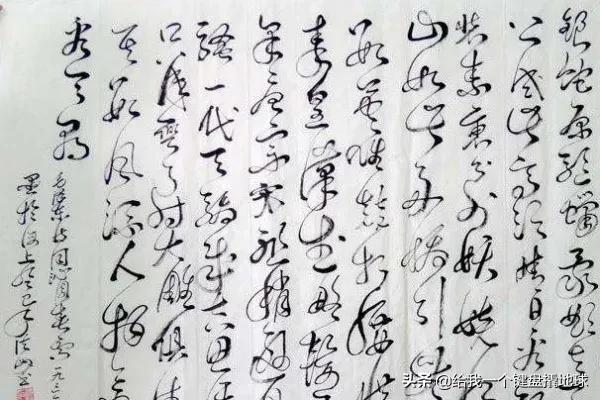 银蛇原驰蜡象欲与
公试比高须晴日看红
装素裹分外妖娆
山如此多娇引无
数英雄竞折腰惜
秦皇汉武略输
采唐宗宋祖稍逊
骚一代天骄成吉思
只识弯弓射大雕俱往
矣数风流人物
看今朝
毛泽东词沁园春雪一九三
墨于海上癸巳年
头条 @给我一个键盘撬地球